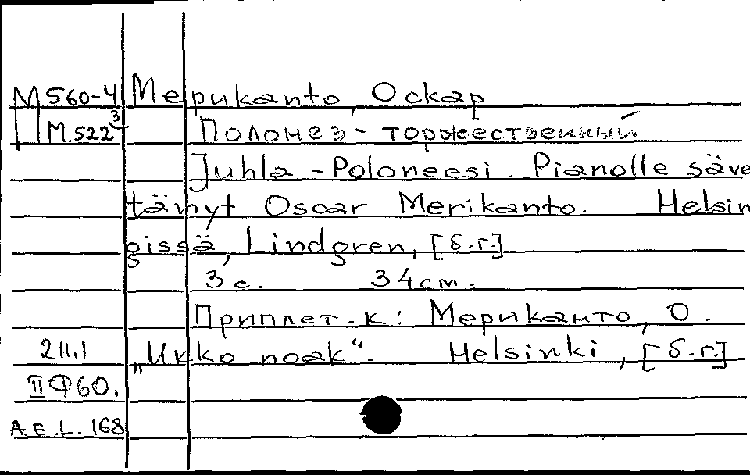 М560-4 Мериканто, Оскар
М.522³ Полонез - торжественный
Juhla - Poloneesi. Pianolle säve
tänyt Oscar Merikanto. Helsin
gissä, Lindgren, [б.г.]
3 с. 34 см.
Приплет. к: Мериканто, О.
211.1 „Ukko noak“. Helsinki, [б.г.]
II Ф60.
A.E.L. 168